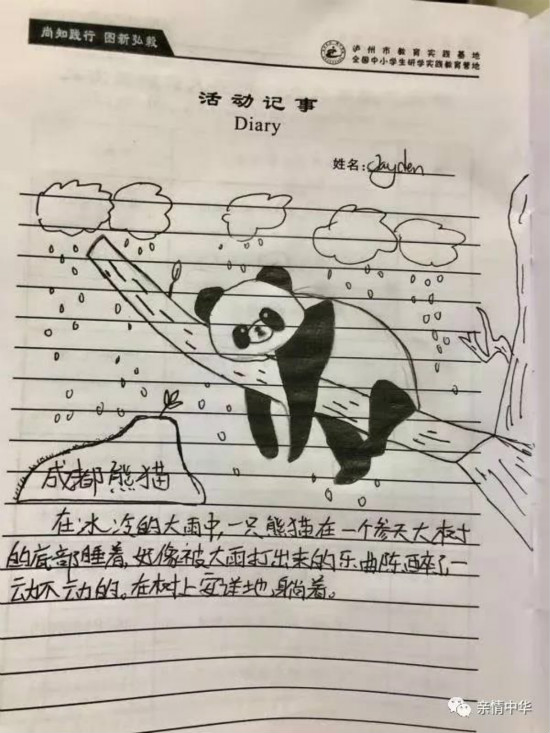 尚知践行 图新弘毅
泸州市教育实践基地
全国中小学生研学实践教育营地
活动记事
Diary
姓名: Jayden
成都熊猫
在冰冷的大雨中,一只熊猫在一个参天大树
的底部睡着,好像被大雨打出来的乐曲陈醉了一
动不动的。在树上安详地躺着。
亲情中华